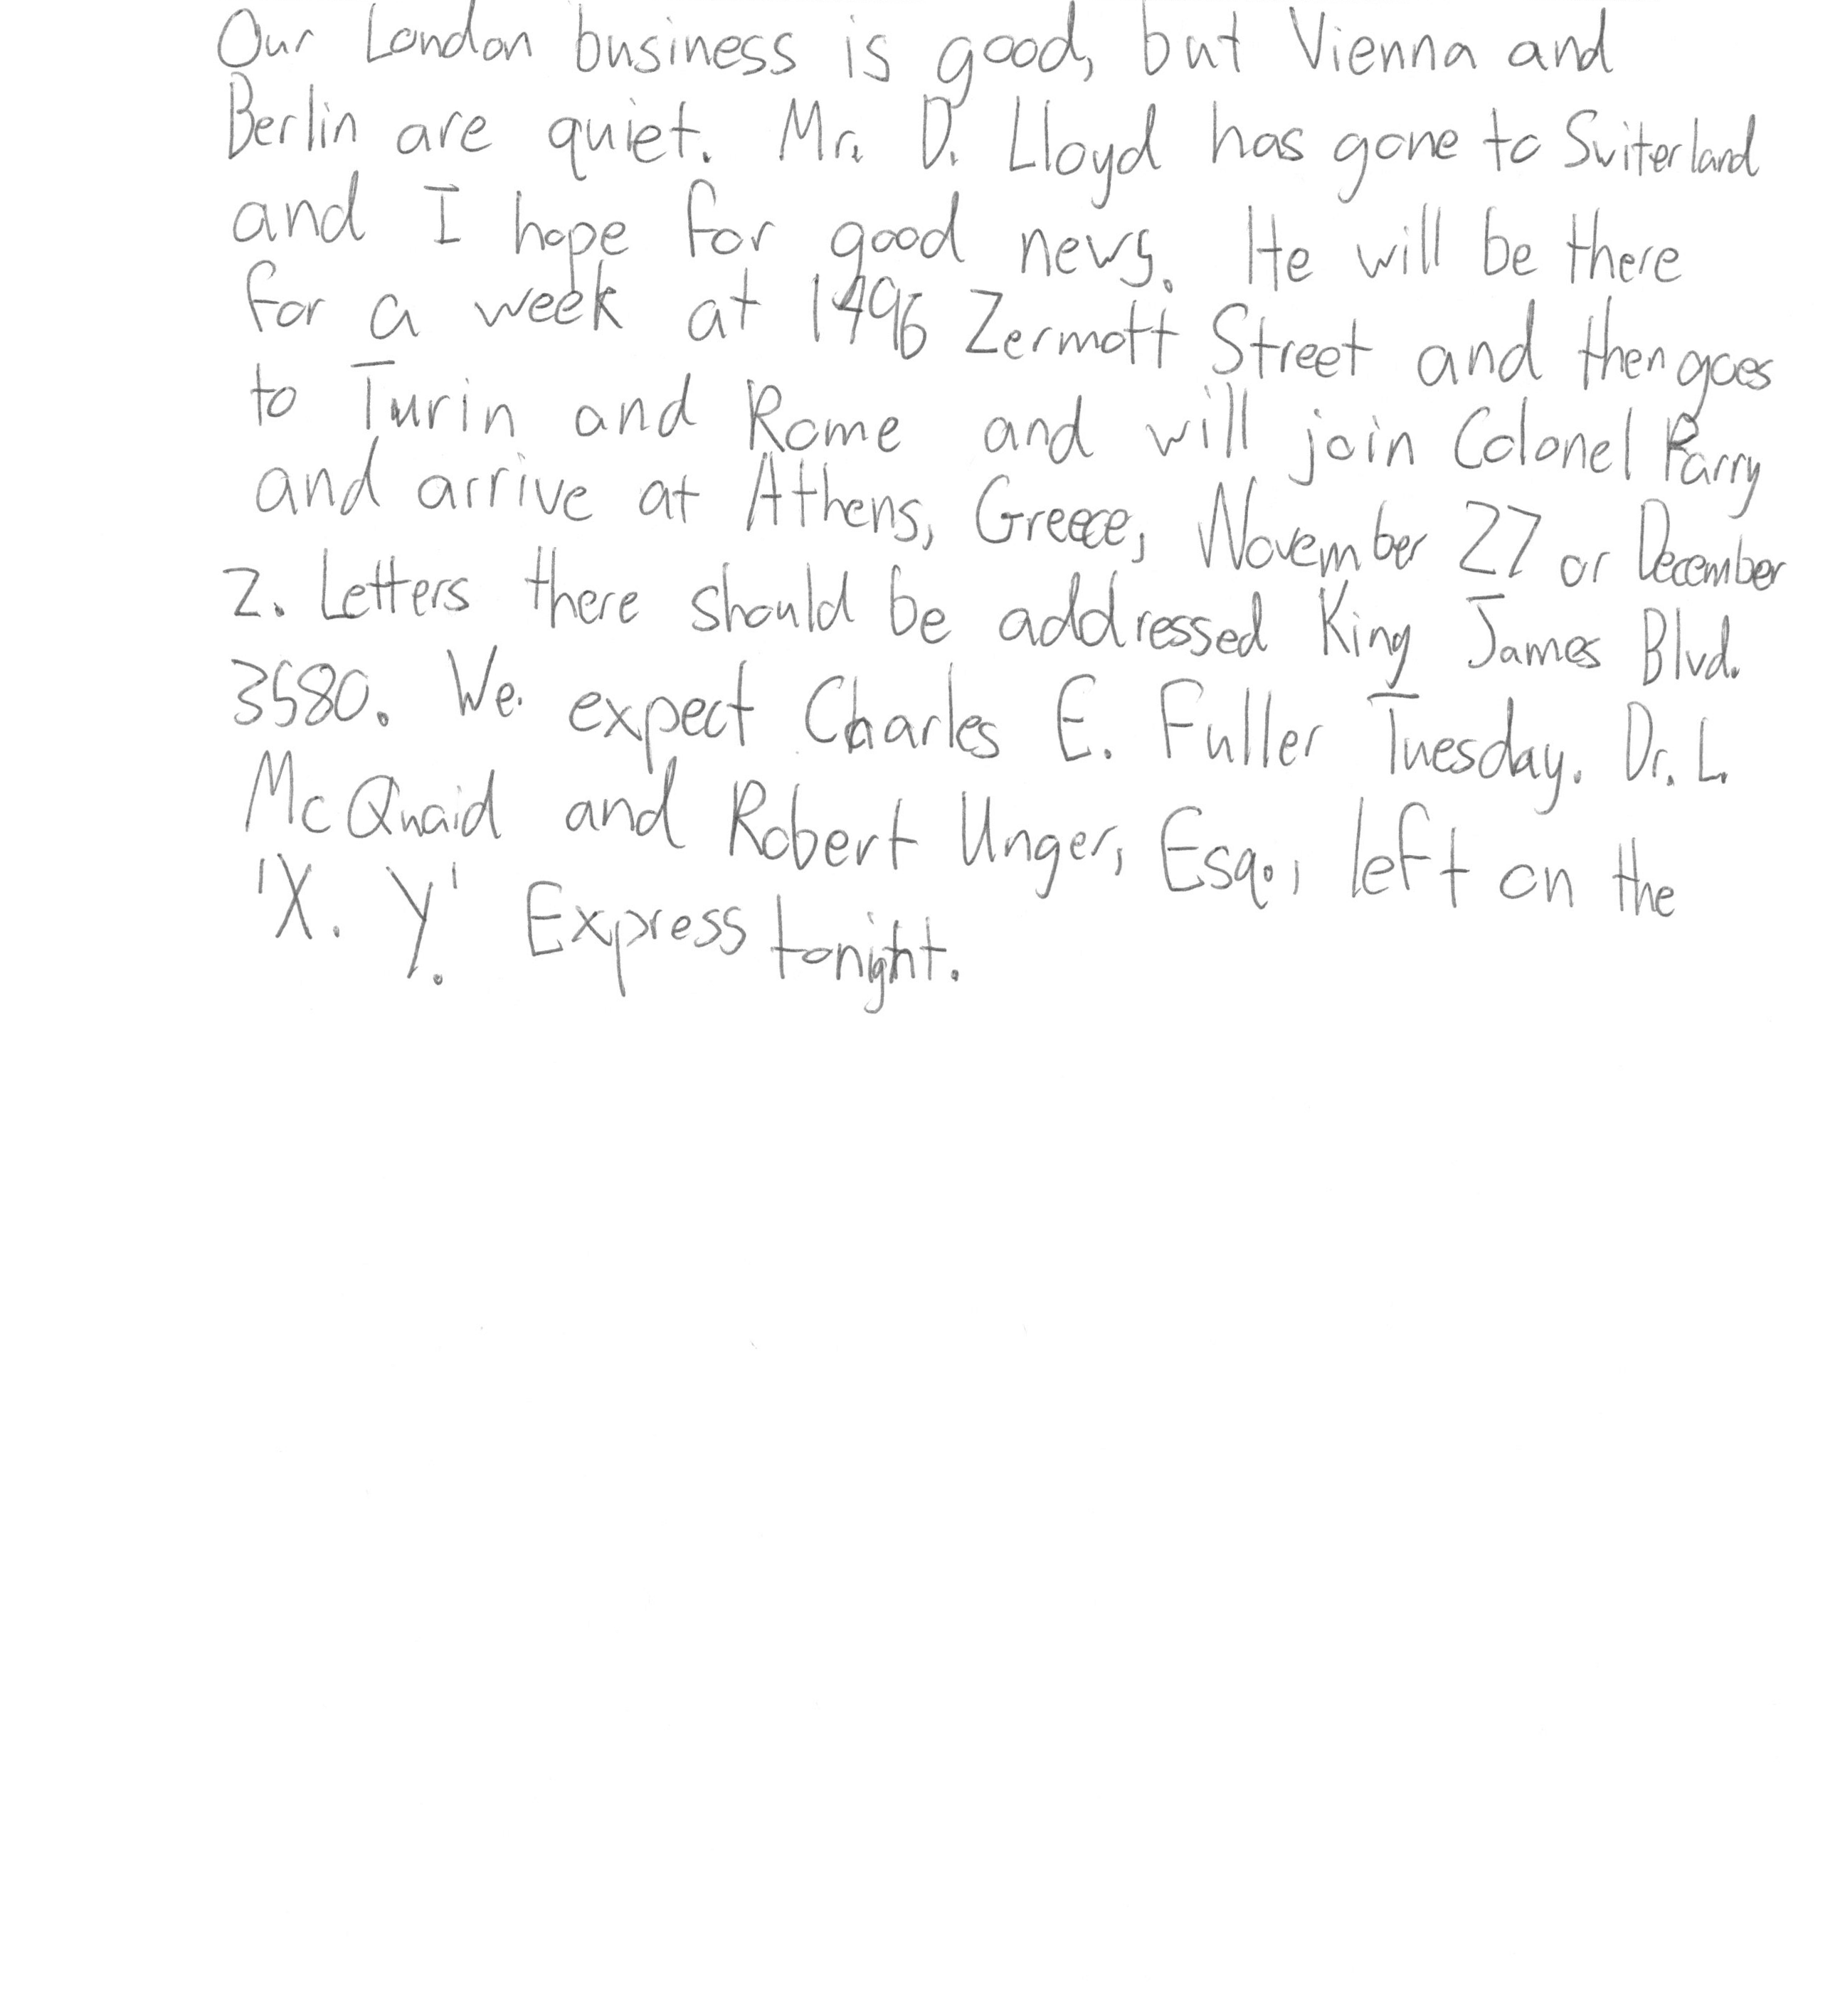 Our London business is good, but Vienna and
Berlin are quiet. Mr. D. Lloyd has gone to Switerland
and I hope for good news. He will be there
for a week at 1496 Zermott Street and then goes
to Turin and Rome and will join Colonel Parry
and arrive at Athens, Greece, November 27 or December
2. Letters there should be addressed King James Blvd.
3580. We expect Charles E. Fuller Tuesday. Dr. L.
McQuaid and Robert Unger, Esq., left on the
'X. Y.' Express tonight.